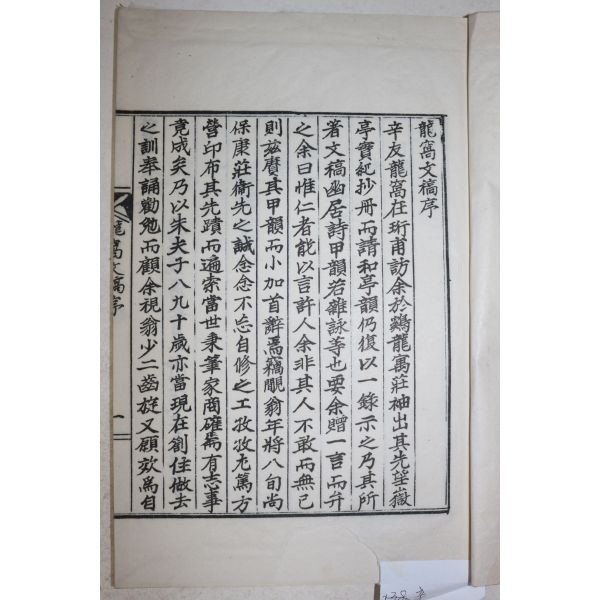 龍窩文稿序
辛友龍窩在珩甫訪余於鷄龍寓莊袖出其先望嶽
亭實紀抄冊而請和亭韻仍復以一錄示之乃其所
著文稿幽居詩甲韻若雜詠等也要余贈一言而弁
之余曰惟仁者能以言許人余非其人不敢而無已
則玆賡其甲韻而小加首辭焉竊覸翁年將八旬尚
保康莊衛先之誠念念不忘自修之工孜孜尤篤方
營印布其先蹟而遍索當世秉筆家商確焉有志事
竟成矣乃以朱夫子八九十歲亦當現在劄住做去
之訓奉誦勸勉而顧余視翁少二齒旋又願效爲自
龍窩文稿序
一